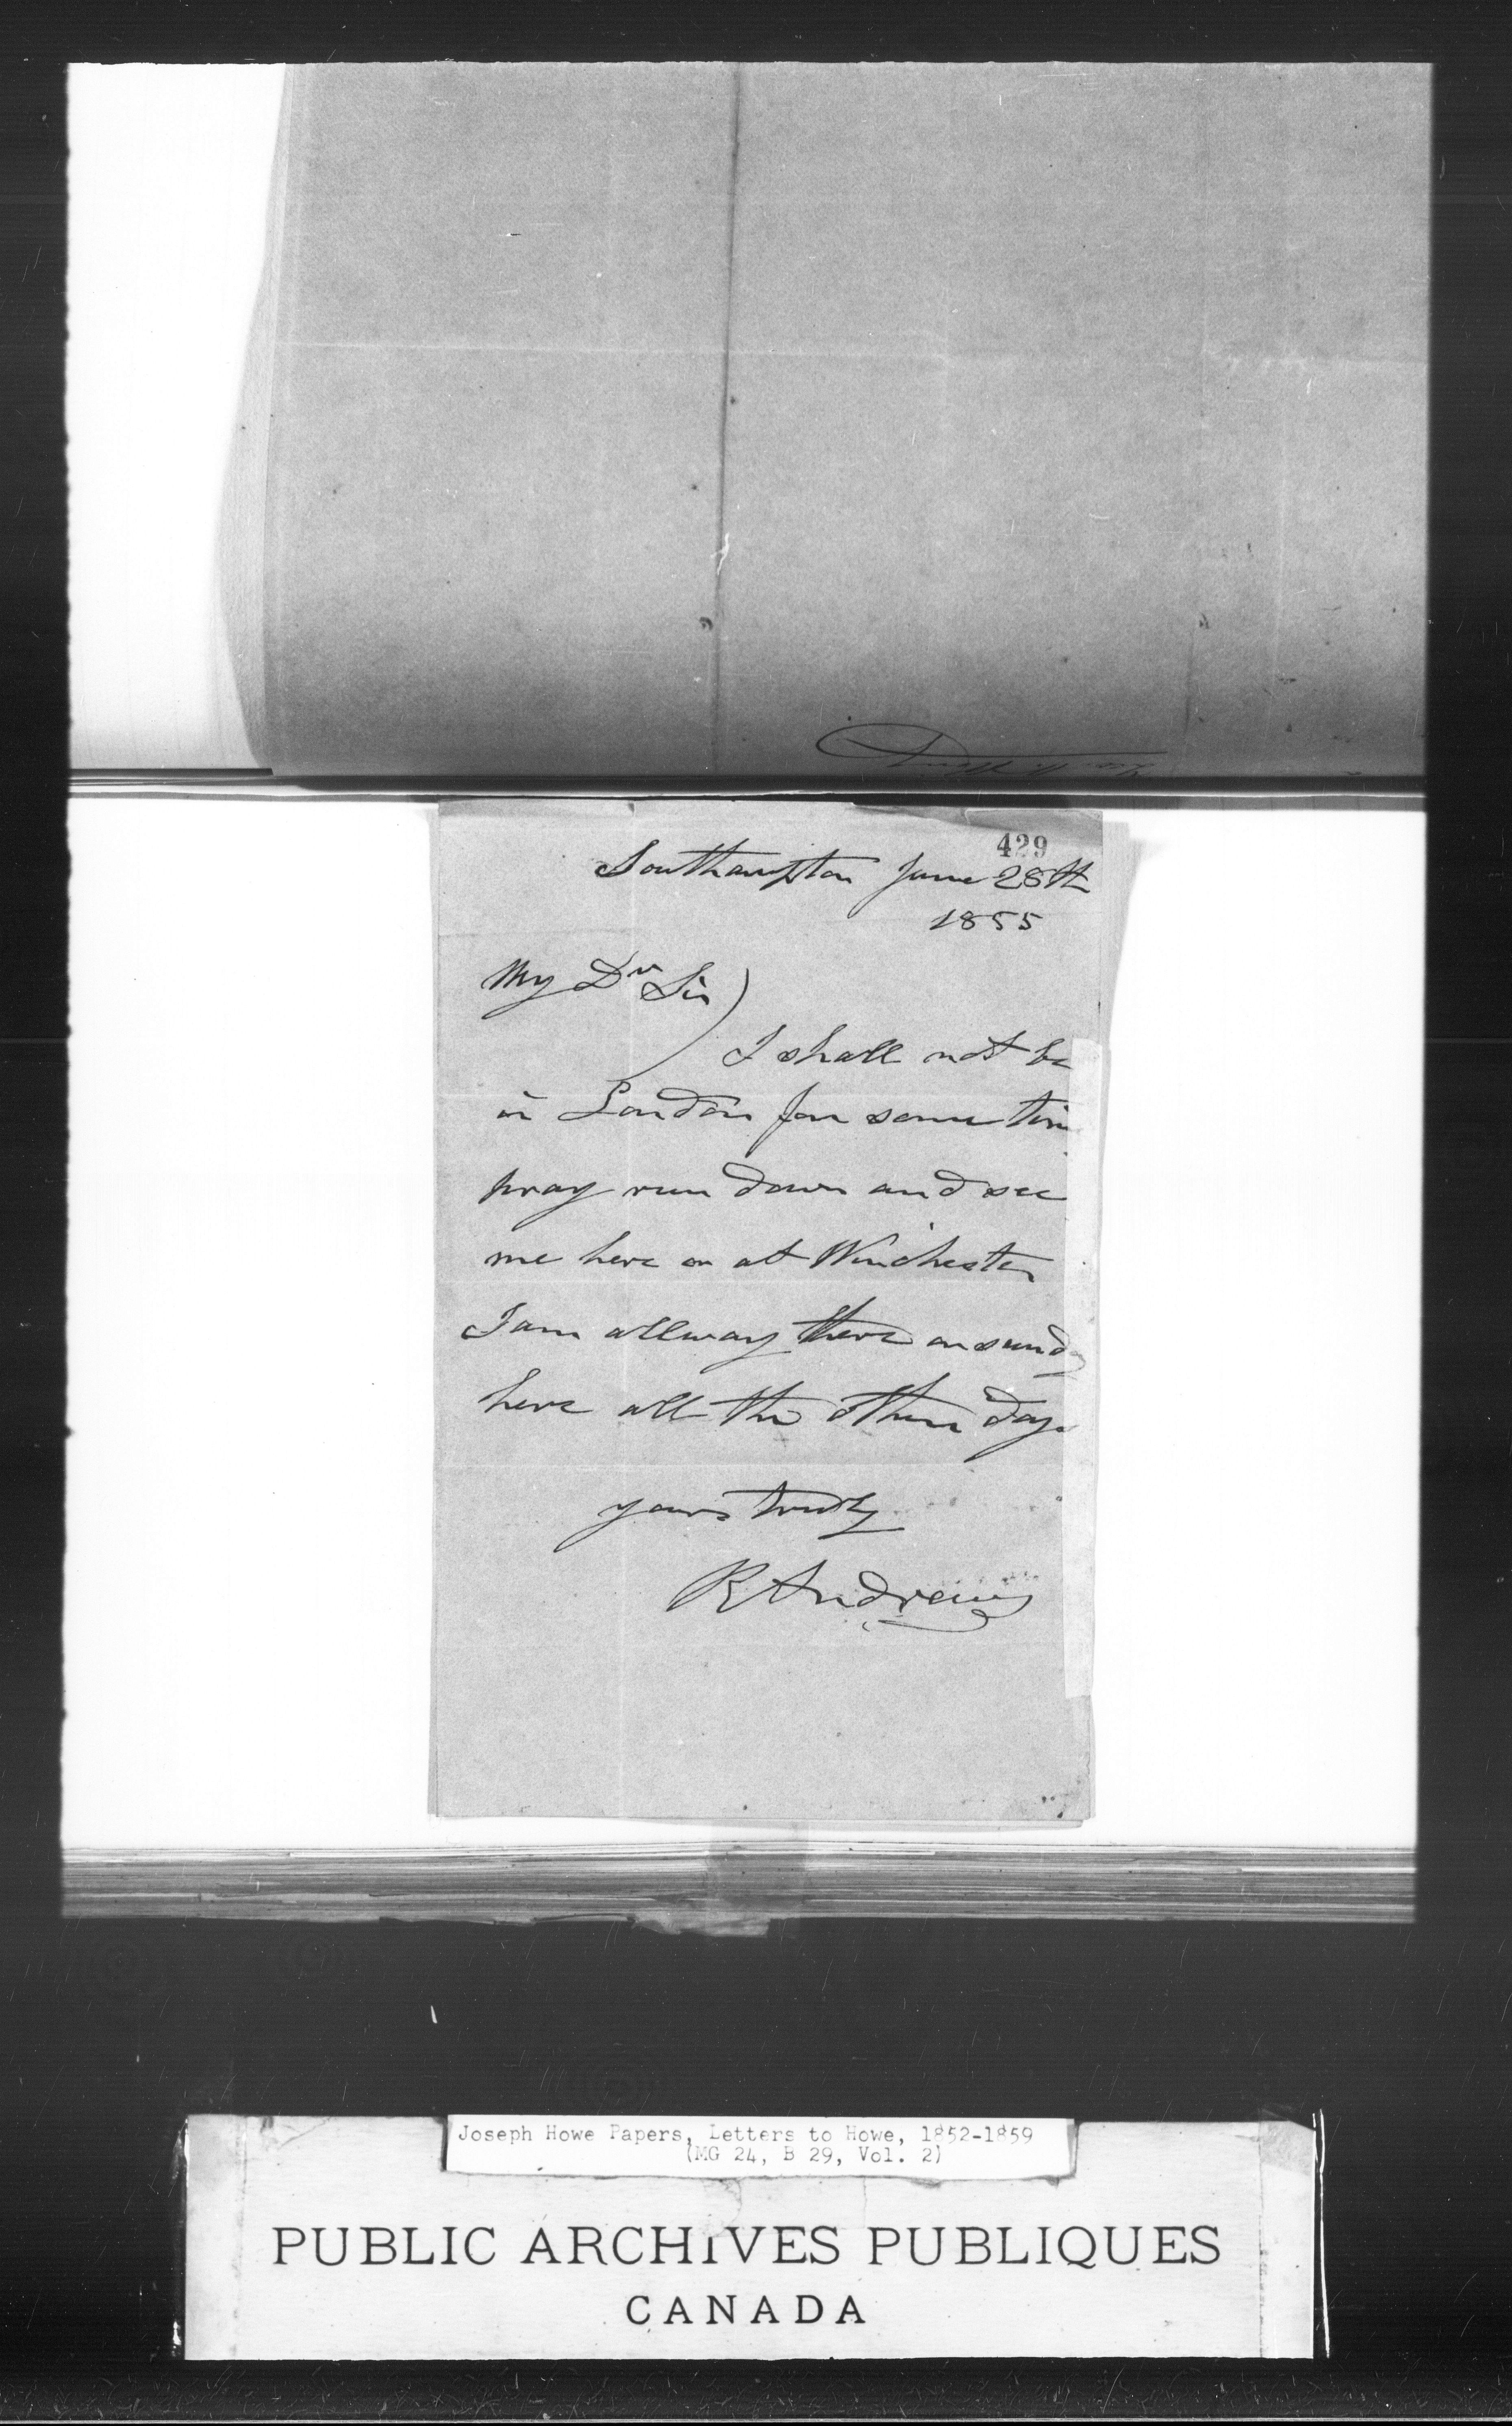 429
Southampton June 28th
1855
My Dr Sir)
I shall not be
in London for some tim
pray run down and see
me here or at Winchester
I am allway there on sunday
here all the other days
yours truly
R Andrews
Joseph Howe Papers, Letters to Howe, 1852-1859
(MG 24, B 29, Vol. 2)
PUBLIC ARCHIVES PUBLIQUES
CANADA